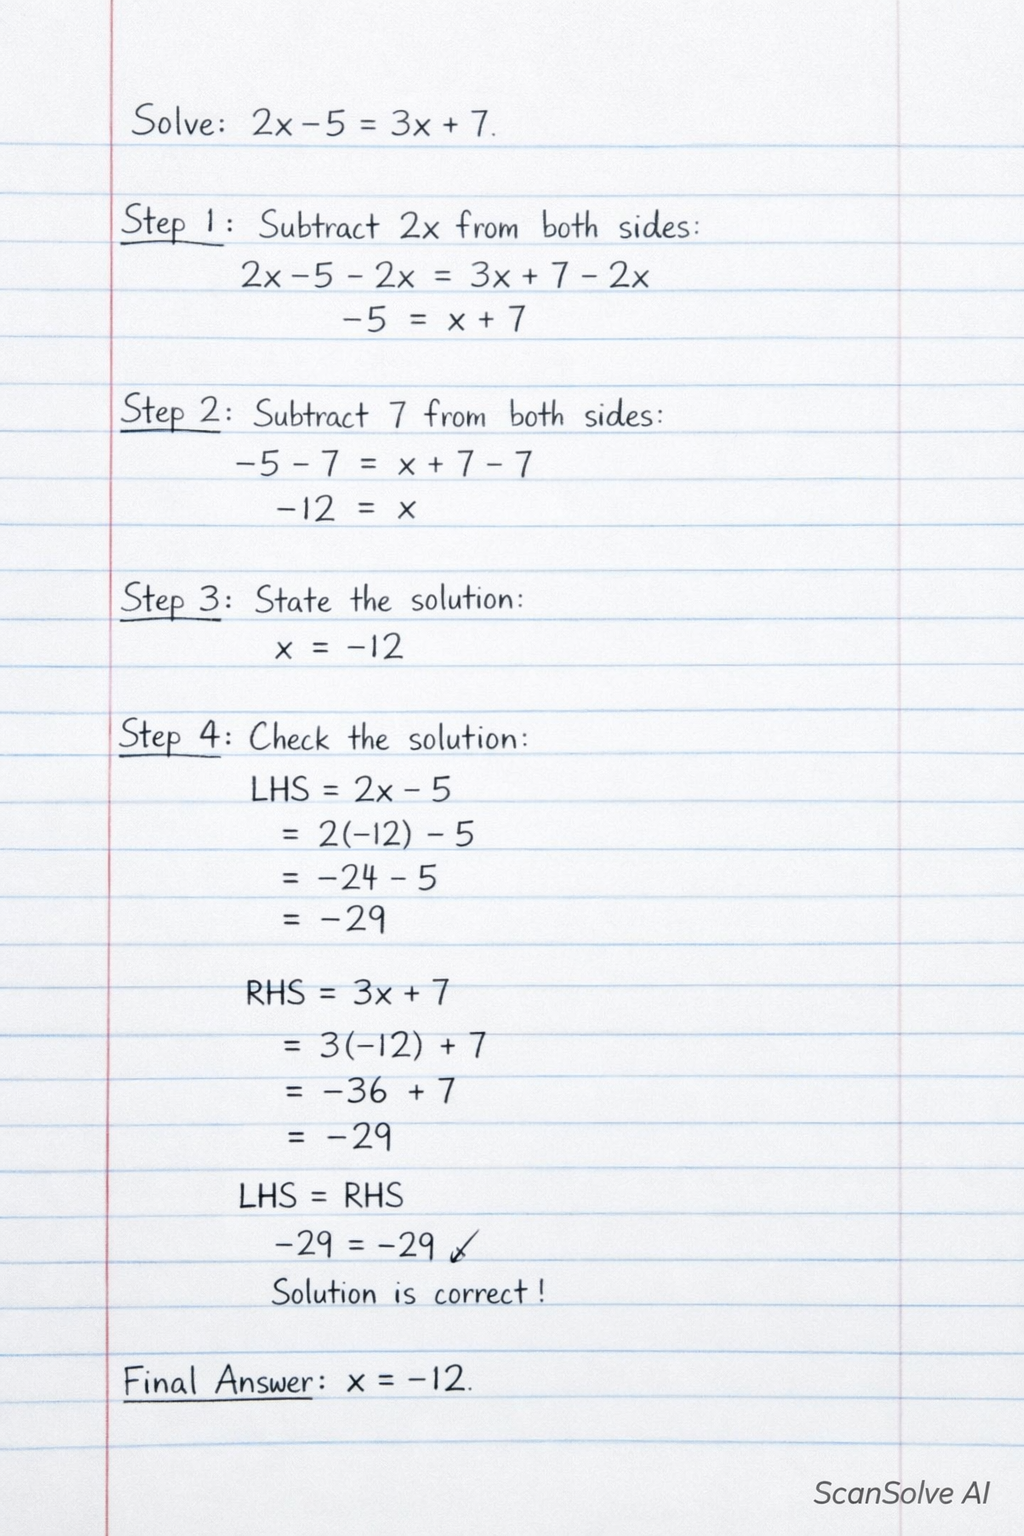 Solve: 2x – 5 = 3x + 7.
Step 1: Subtract 2x from both sides:
2x – 5 – 2x = 3x + 7 – 2x
–5 = x + 7
Step 2: Subtract 7 from both sides:
–5 – 7 = x + 7 – 7
–12 = x
Step 3: State the solution:
x = –12
Step 4: Check the solution:
LHS = 2x – 5
= 2(–12) – 5
= –24 – 5
= –29
RHS = 3x + 7
= 3(–12) + 7
= –36 + 7
= –29
LHS = RHS
–29 = –29 ✓
Solution is correct!
Final Answer: x = –12.
ScanSolve AI